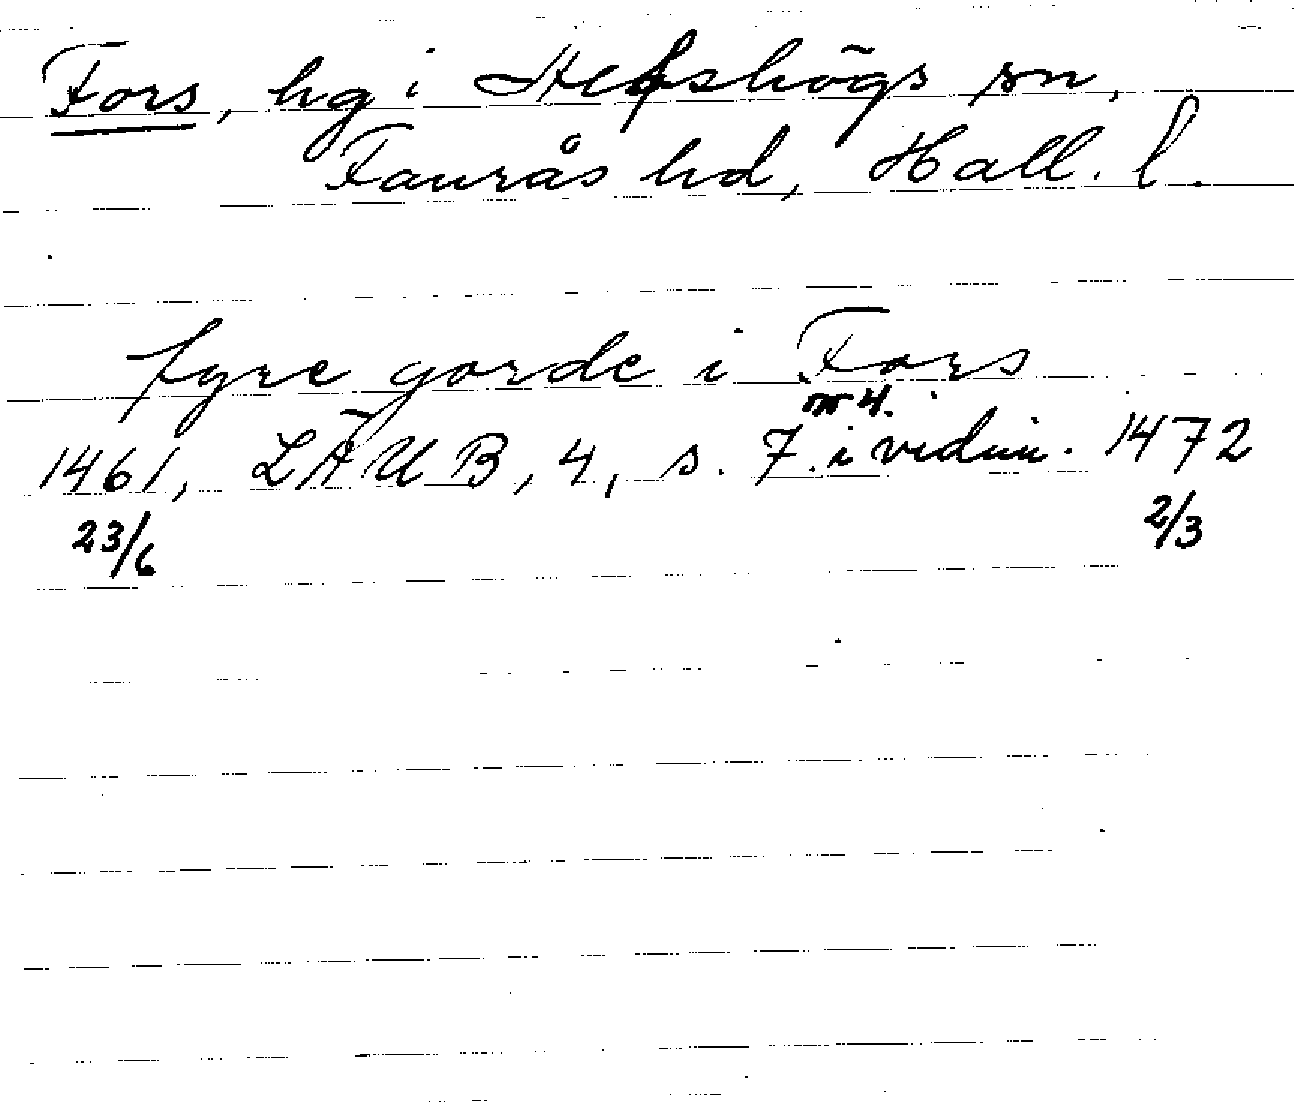 Fors, hg i Alfshögs sn,
Faurås hd, Hall. l.
fyre gorde i Fors
nr 4.
1461, LÄUB, 4, s. 7 i vidim. 1472
23/6 2/3